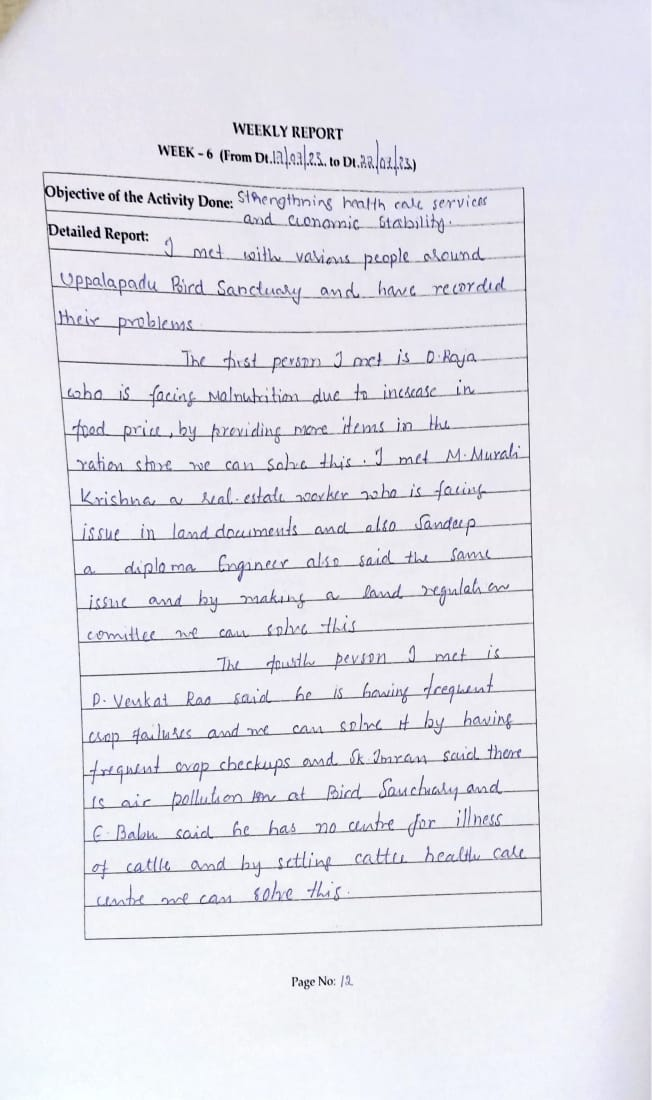 WEEKLY REPORT
WEEK – 6 (From Dt.17/03/23. to Dt.22/03/23)
Objective of the Activity Done: Strengthning health care services
and economic Stability.
Detailed Report: I met with various people around
Uppalapadu Bird Sanctuary and have recorded
their problems
The first person I met is D.Raja
who is facing Malnutrition due to increase in
food price, by providing more items in the
ration store we can solve this. I met M.Murali
Krishna a real-estate worker who is facing
issue in land documents and also Sandeep
a diploma Engineer also said the same
issue and by making a land regulation
comittee we can solve this
The fourth person I met is
P. Venkat Rao said he is having frequent
crop failures and we can solve it by having
frequent crop checkups and Sk.Imran said there
is air pollution at Bird Sanctuary and
E. Babu said he has no centre for illness
of cattle and by setting cattle health care
centre we can solve this.
Page No: 12